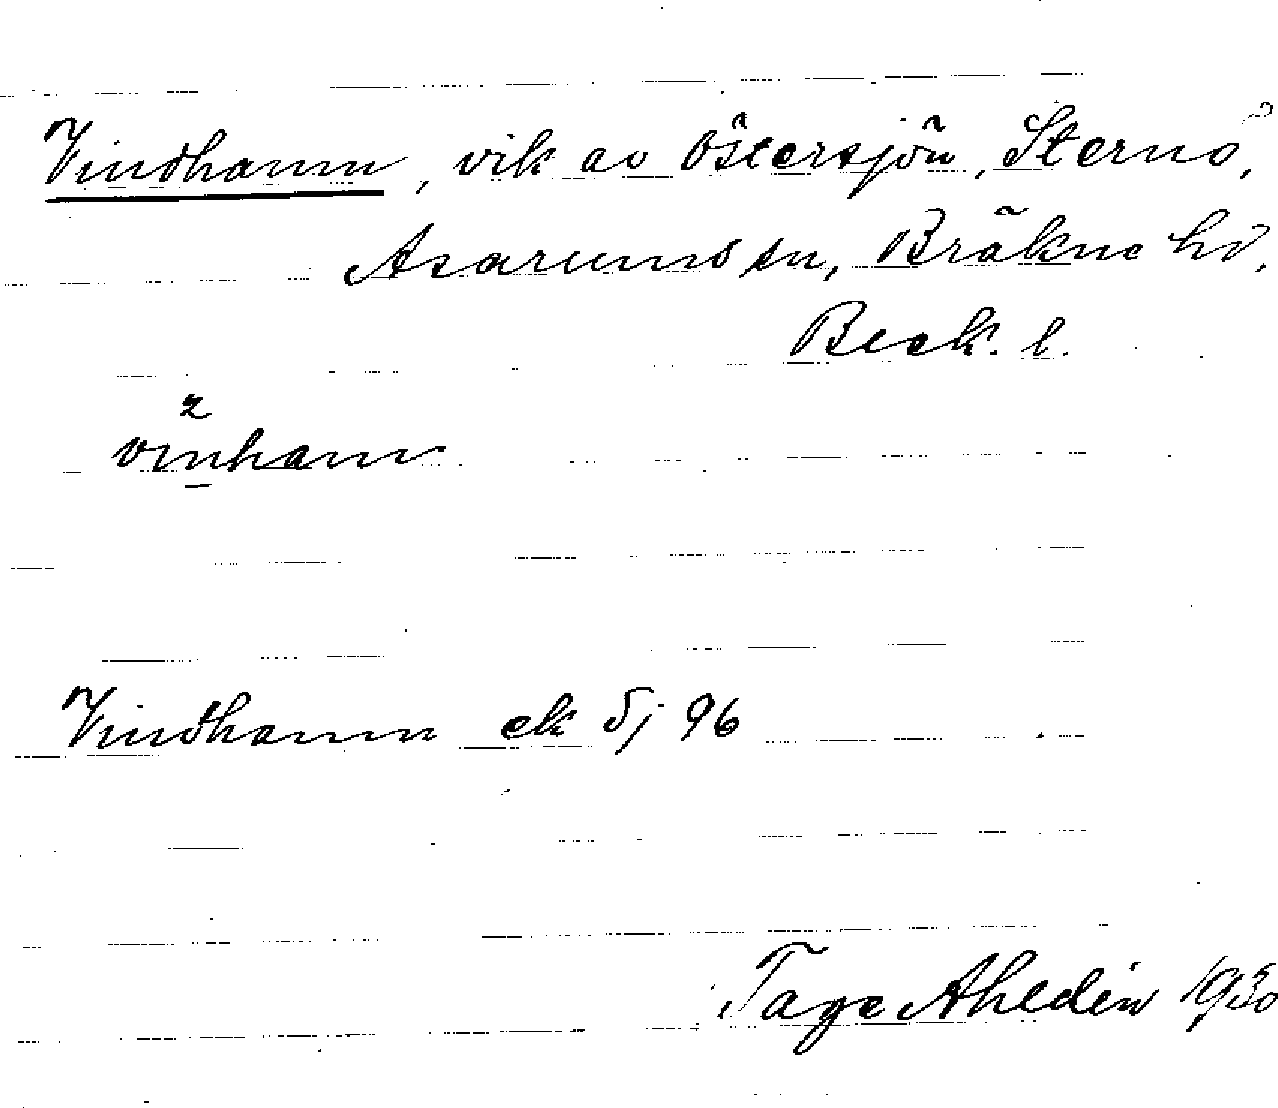 Vindhamn, vik av Östersjön, Sternö,
Asarums sn, Bräkne hd,
Bleck. l.
vinhamn
Vindhamn ek Sj 96
Tage Ahledin 1930